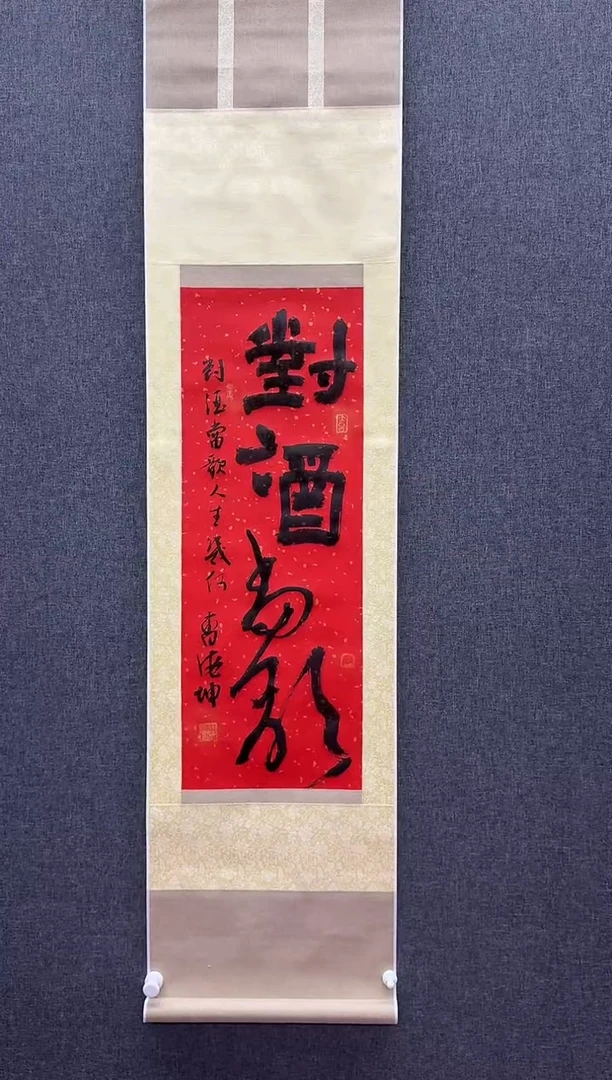 對酒當歌
對酒當歌人生幾何